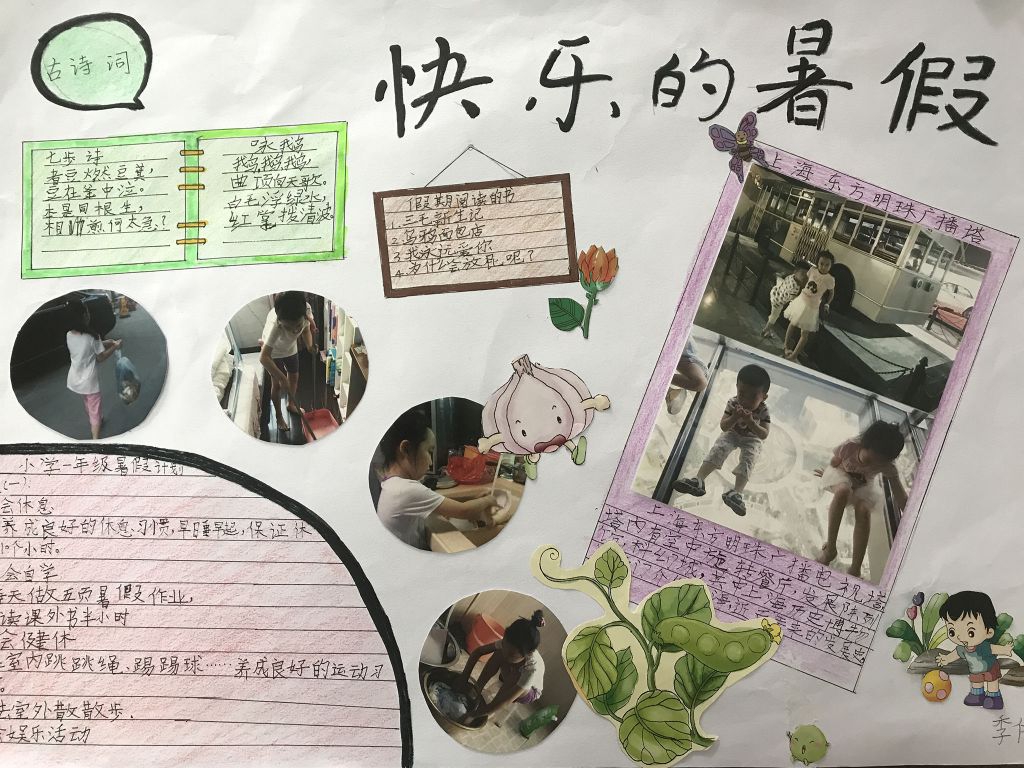 快乐的暑假
古诗词
七步诗
煮豆燃豆萁,
豆在釜中泣。
本是同根生,
相煎何太急?
咏鹅
鹅鹅鹅,
曲项向天歌。
白毛浮绿水,
红掌拨清波
假期阅读的书
1.三毛新生记
2.乌鸦面包店
3.我永远爱你
4.为什么会放屁呢?
上海东方明珠广播塔
上海东方明珠广播电视塔
塔内有空中旋转餐厅,
小学一年级暑假计划
(一)
会休息
养成良好的休息习惯,早睡早起,保证休
10个小时。
会自学
每天做五页暑假作业,
阅读课外书半小时
会健体
室内跳跳绳、踢踢球……养成良好的运动习
去室外散散步.
娱乐活动
李